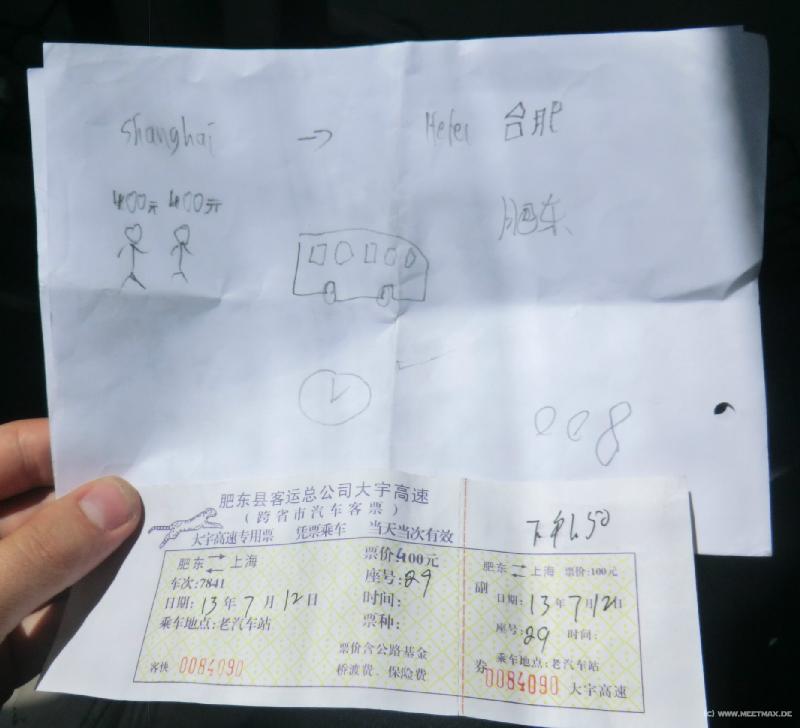 Shanghai → Hefei 合肥
400元 400元
肥东
008
肥东县客运总公司大宇高速
(跨省市汽车客票)
大宇高速专用票 凭票乘车 当天当次有效
肥东 ⇄ 上海
票价400元
车次:7841
座号:29
日期:13年7月12日
时间:
乘车地点:老汽车站
票种:
票价含公路基金
桥渡费、保险费
客快 0084090
下午1.50
肥东 ⇄ 上海 票价:100元
副
日期:13年7月12日
座号:29 时间:
乘车地点:老汽车站
券 0084090 大宇高速
(C) WWW.MEETMAX.DE